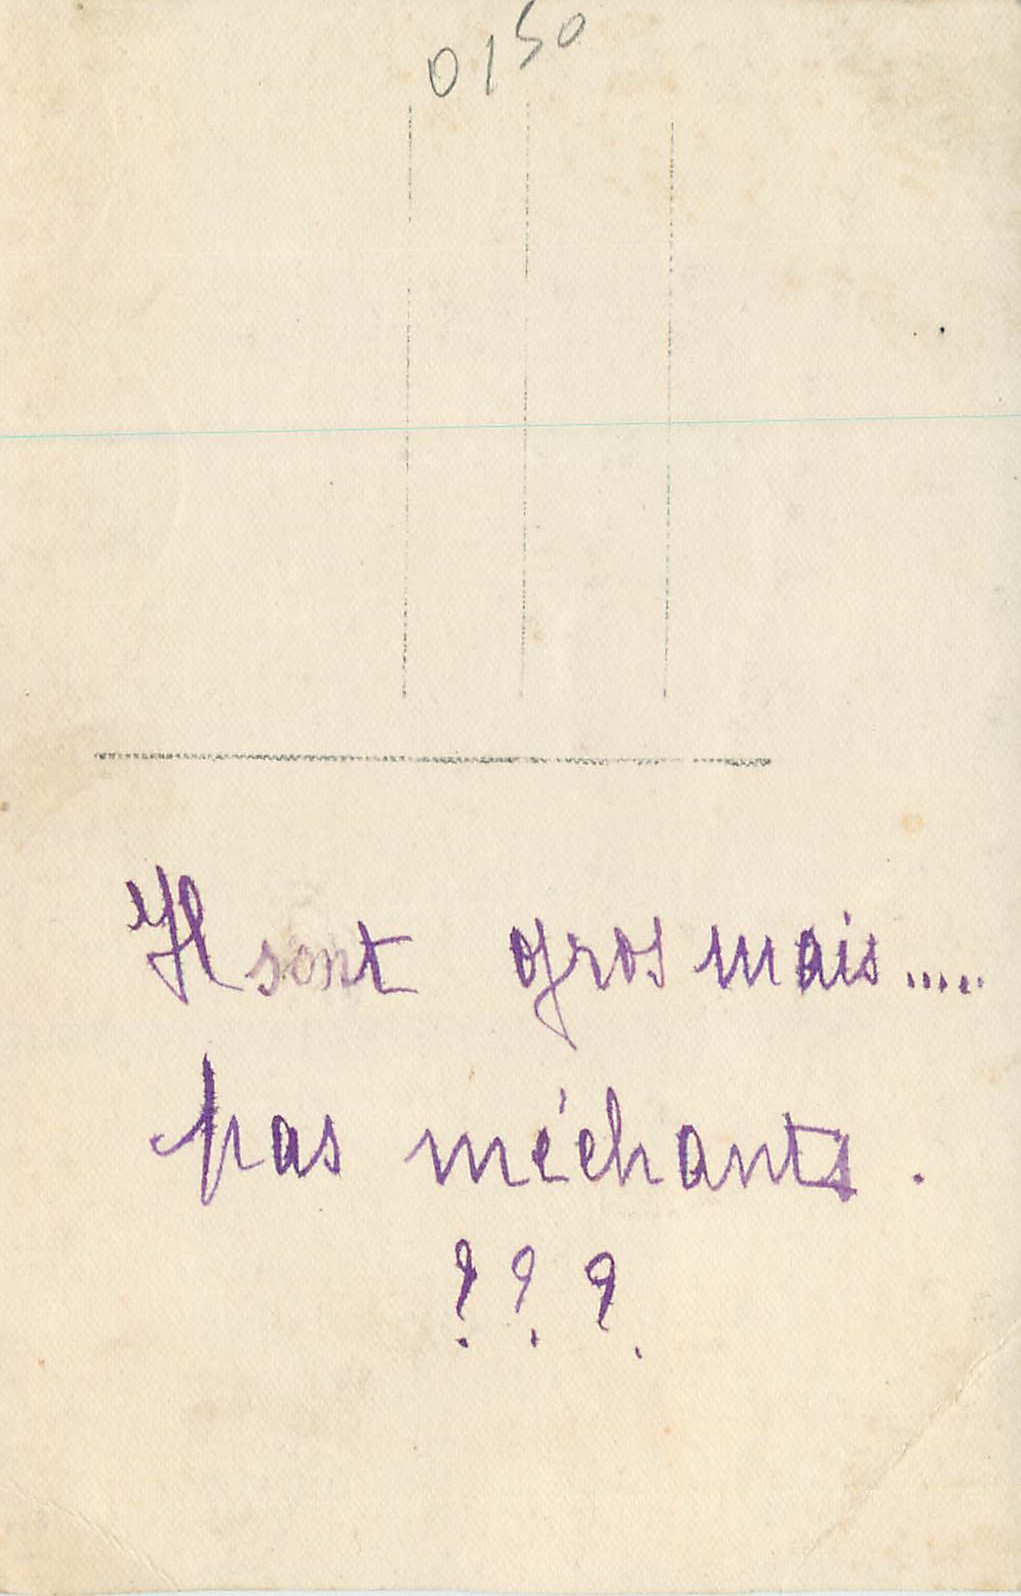 0150
Il sont gros mais.....
pas méchants.
???